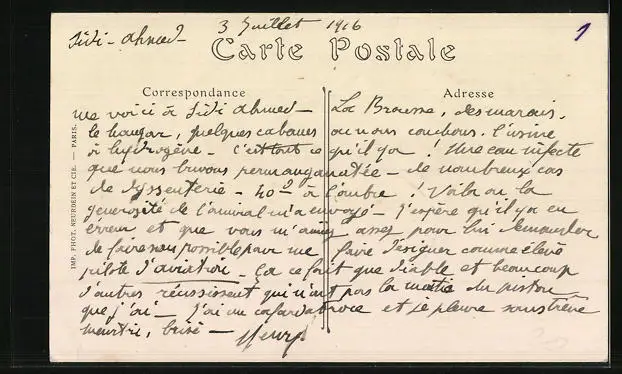 Sidi-Ahmed 3 Juillet 1916
1
Carte Postale
Correspondance Adresse
me voici à Sidi Ahmed - La Brousse, des marais.
le hangar, quelques cabanes ou nous couchons. l'usine
à hydrogène - c'est tout ce qu'il y a ! Une eau infecte
que nous buvons permanganatée - de nombreux cas
de dyssenterie - 40° à l'ombre ! Voila ou la
generosité de l'amiral m'a envoyé - J'espère qu'il y a eu
erreur, et que vous m'aimez assez pour lui demander
de faire son possible pour me faire designer comme élève
pilote d'aviation - Ca ce fait que diable et beaucoup
d'autres réussissent qui n'ont pas la moitié du piston
que j'ai - J'ai un cafard atroce et je pleure sans trève
meurtri, brisé - Henry
IMP. PHOT. NEURDEIN ET CIE. — PARIS.